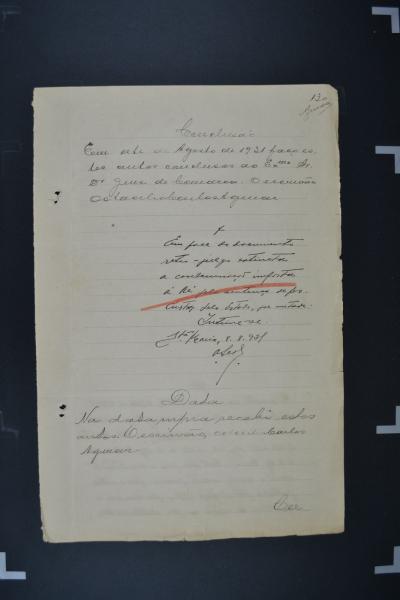 13
Conclusão
Com sete de Agosto de 1931 faço es
tes autos conclusos ao Ex.mo Sr.
Dr Juiz de Comarca. O escrivão
Aguiar
Em face do documento
retro, julgo extincta
a condemnação imposta
á Ré pela sentença de fls.
Custas pelo Estado, por metade.
Intime-se.
Sta Maria, 8. 8. 931
Data
Na data supra recebi estes
autos. O escrivão, Carlos
Aguiar
Cer